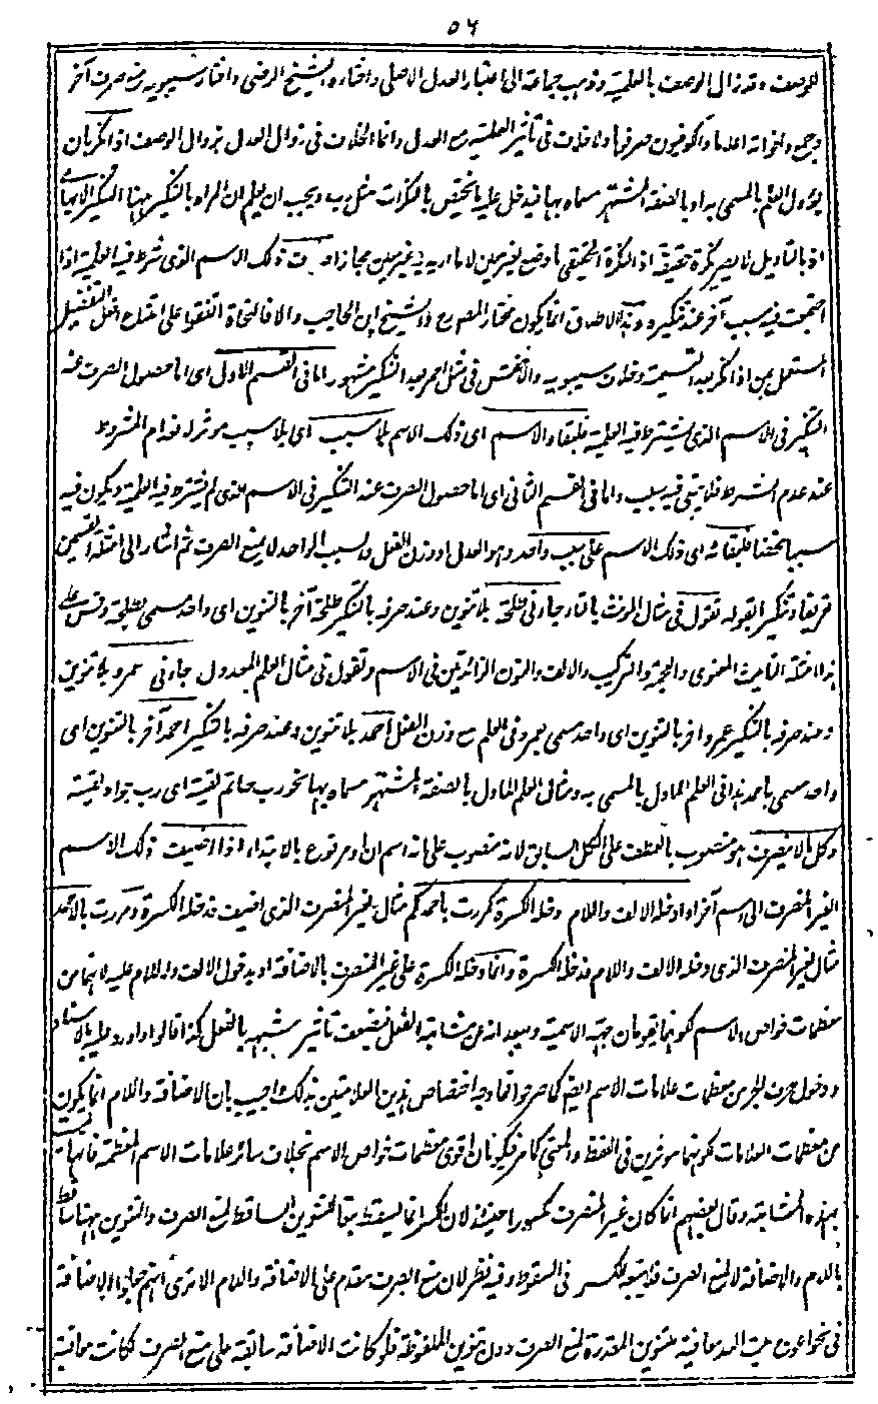 ٥٦
للوصف وقد زال الوصف بالعلمية وذهب جماعة الى اعتبار العدل الاصلي واختاره الشيخ الرضي واختار سيبويه منع صرف آخر
وجمع واخواته اعلاما والكوفيون صرفها ولا خلاف في تأثير العلمية مع العدل وانما الخلاف في زوال العدل بزوال الوصف اذا نكر بان
يؤول العلم بالمسمى به او بالصفة المشتهر مسماه بها فيدخل عليه ما يختص بالنكرات مثل رب ويجب ان يعلم ان المراد بالتنكير ههنا التنكير الايهامي
اذ بالتاويل لا يصير نكرة حقيقة اذ النكرة الحقيقي ما وضع لغير معين لا ما اريد به غير معين مجازا ذلك الاسم الذي شرط فيه العلمية اذا
اجتمعت فيه سبب آخر عند تنكيره وهذا الاطلاق انما يكون مختار المصنف الشيخ ابن الحاجب والا فالنحاة اتفقوا على امتناع افعل التفضيل
المستعمل بمن اذا نكر بعد التسمية وخلاف سيبويه والاخفش في مثل احمر بعد التنكير مشهور اما في القسم الاول اي اما حصول الصرف عند
التنكير في الاسم الذي يشترط فيه العلمية فلبقاء الاسم اي ذلك الاسم بلا سبب اي بلا سبب موثر لانعدام المشروط
عند عدم الشرط فلا يبقى فيه سبب واما في القسم الثاني اي اما حصول الصرف عند التنكير في الاسم الذي لم يشترط فيه العلمية ويكون فيه
سببا محضا فلبقائه اي ذلك الاسم على سبب واحد وهو العدل او وزن الفعل والسبب الواحد لا يمنع الصرف ثم اشار الى امثلة القسمين
تعريفا وتنكيرا بقوله تقول في مثال المونث بالتاء جاءني طلحة بلا تنوين وعند صرفه بالتنكير طلحة آخر بالتنوين اي واحد مسمى بطلحة وقس على
هذا امثلة التانيث المعنوي والعجمة والتركيب والالف والنون الزائدتين في الاسم وتقول في مثال العلم المعدول جاءني عمر بلا تنوين
وعند صرفه بالتنكير عمر آخر بالتنوين اي واحد مسمى بعمر وفي العلم مع وزن الفعل احمد بلا تنوين وعند صرفه بالتنكير احمد آخر بالتنوين اي
واحد مسمى باحمد هذا في العلم الماول بالمسمى به ومثال العلم الماول بالصفة المشتهر مسماه بها نحو رب حاتم لقيته اي رب جواد لقيته
وكل ما لا ينصرف هو منصوب بالعطف على الكل السابق لانه منصوب على انه اسم ان او مرفوع بالابتداء اذا اضيف ذلك الاسم
الغير المنصرف الى اسم آخر او ادخله الالف واللام دخله الكسرة نحو مررت باحمدكم مثال لغير المنصرف الذي اضيف فدخله الكسرة ومررت بالاحمد
مثال لغير المنصرف الذي دخله الالف واللام فدخله الكسرة وانما دخله الكسرة على غير المنصرف بالاضافة او بدخول الالف واللام عليه لانهما من
معظمات خواص الاسم لكونهما يقويان جهة الاسمية ويبعدانه عن مشابهة الفعل فيضعف تأثير شبهه بالفعل هكذا قالوا واورد عليه بالاسناد
ودخول حرف الجر من معظمات علامات الاسم ايضا كما صرحوا فما وجه اختصاص هذين العلامتين بذلك واجيب بان الاضافة واللام انما يكون
من معظمات العلامات لكونهما موثرين في اللفظ والمعنى كما مر فيكونان اقوى معظمات خواص الاسم بخلاف سائر علامات الاسم المعظمة فانها ليست
بهذه المشابة وقال بعضهم انما كان غير المنصرف مكسورا حينئذ لان الكسر انما يسقط تبعا للتنوين الساقط لمنع الصرف والتنوين ههنا ساقط
باللام والاضافة لا لمنع الصرف فلا يتبعه الكسر في السقوط وفيه نظر لان منع الصرف مقدم على الاضافة واللام الا ترى انهم جعلوا الاضافة
في نحو بيت الله معاقبة للتنوين المقدرة لمنع الصرف دون تنوين الملفوظة فلو كانت الاضافة سابقة على منع الصرف لكانت معاقبة